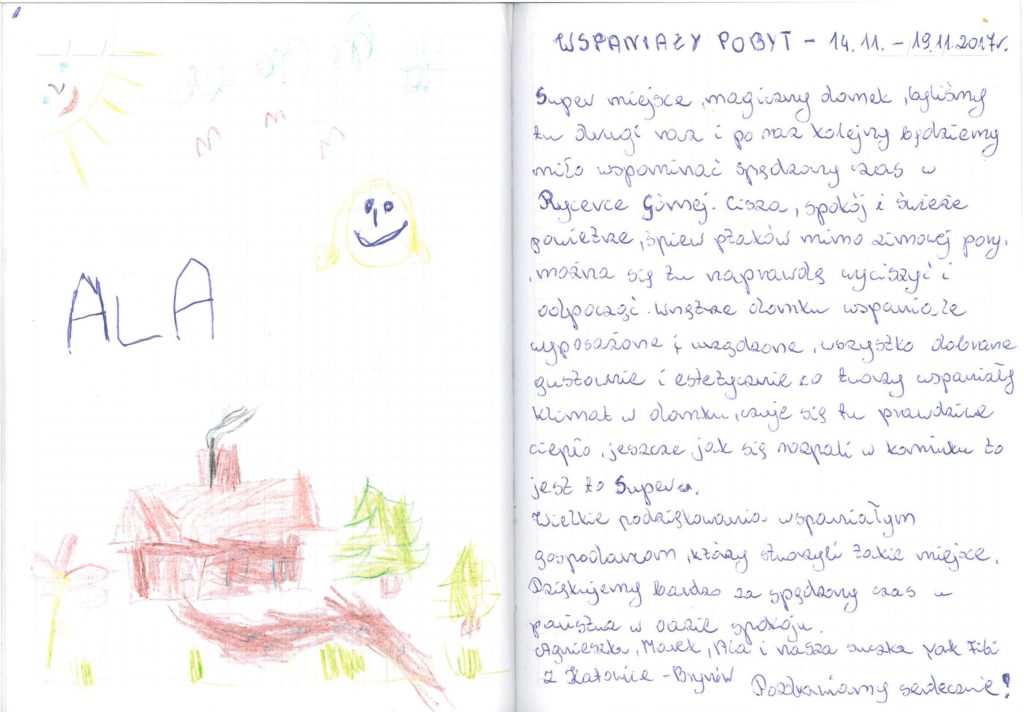 ALA
WSPANIAŁY POBYT - 14.11. - 19.11.2017r.
Super miejsce, magiczny domek, byliśmy
tu drugi raz i po raz kolejny będziemy
miło wspominać spędzony czas w
Rycerce Górnej. Cisza, spokój i świeże
powietrze, śpiew ptaków mimo zimowej pory,
można się tu naprawdę wyciszyć i
odpocząć. Wnętrze domku wspaniale
wyposażone i urządzone, wszystko dobrane
gustownie i estetycznie co tworzy wspaniały
klimat w domku, czuje się tu prawdziwe
ciepło, jeszcze jak się rozpali w kominku to
jest to Super.
Wielkie podziękowania wspaniałym
gospodarzom, którzy stworzyli takie miejsce.
Dziękujemy bardzo za spędzony czas u
państwa w oazie spokoju.
Agnieszka, Marek, Ala i nasza suczka york Fibi
z Katowice - Brynów
Pozdrawiamy serdecznie!